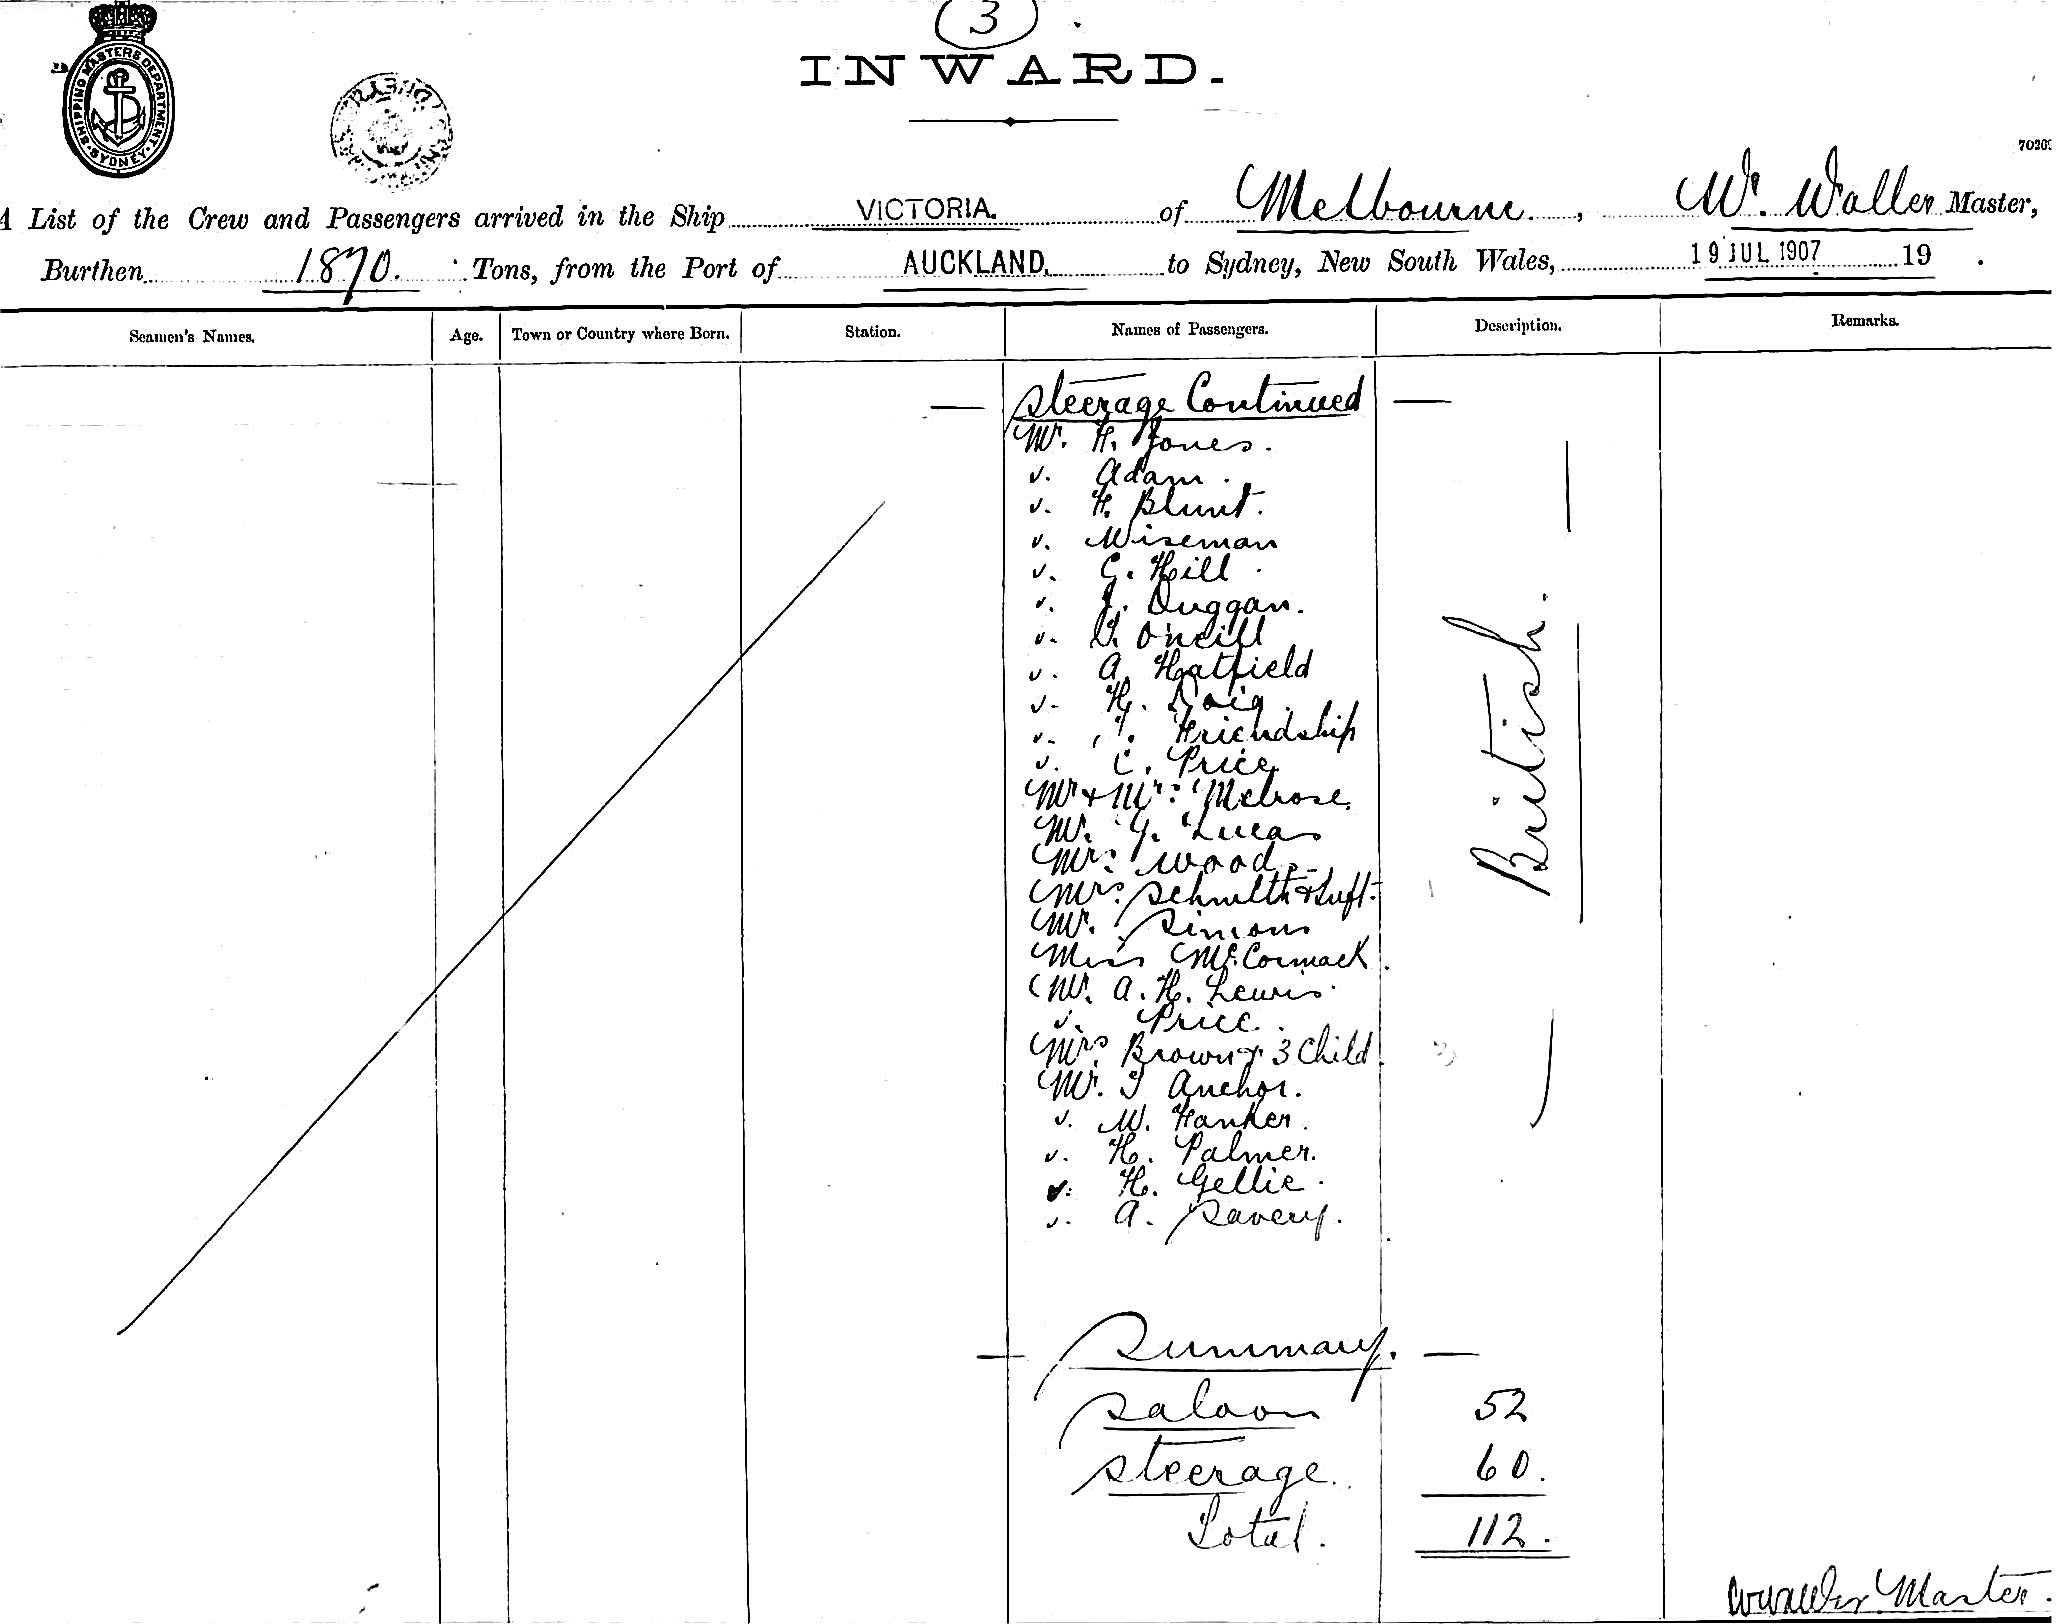 3
INWARD.
SHIPPING MASTERS DEPARTMENT SYDNEY
7020
A List of the Crew and Passengers arrived in the Ship VICTORIA. of Melbourne, W. Waller Master,
Burthen 1870. Tons, from the Port of AUCKLAND, to Sydney, New South Wales, 19 JUL 1907 19 .
Seamen's Names. Age. Town or Country where Born. Station. Names of Passengers. Description. Remarks.
— Steerage Continued —
Mr. H. Jones.
". Adam.
". H. Blunt.
". Wiseman
". G. Hill
". J. Duggan.
". T. O'neill
". A. Hatfield
". H. Doig.
". Friendship
". C. Price
Mr & Mrs Melrose.
Mr. G. Lucas
Mrs Wood.
Mrs.
Mr. Simons
Miss McCormack.
Mr. A. H. Lewis.
". Price.
Mrs. Brown & 3 Child.
Mr. T Anchor.
". W. Hanker.
". H. Palmer.
". H. Gellie.
". A. Savery.
British.
— Summary. —
Saloon 52
Steerage. 60.
Total. 112.
W Waller Master.